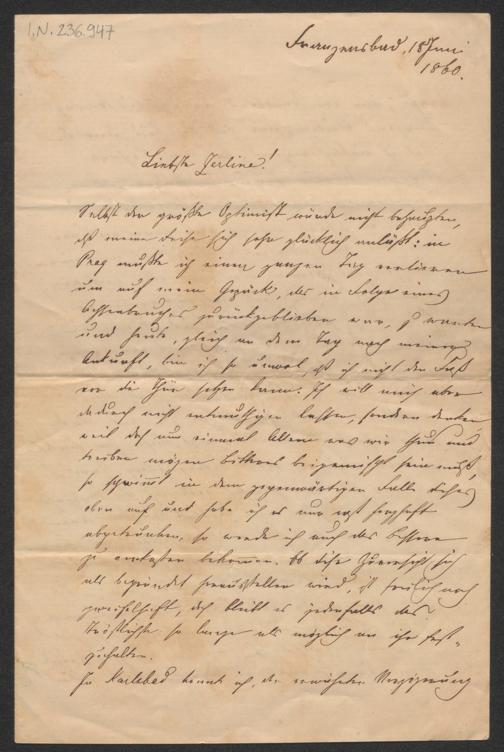 I.N. 236.947
Franzensbad, 18 Juni
1860.
Liebste Zerline!
Selbst der größte Optimist würde nicht behaupten,
daß meine Reise sich sehr glücklich anläßt: in
Prag mußte ich einen ganzen Tag verlieren
um auf mein Gepäck, das in Folge eines
Achsenbruches zurückgeblieben war, zu warten
und heute, gleich an dem Tag nach meiner
Ankunft, bin ich so unwol, daß ich nicht den Fuß
vor die Thür setzen kann. Ich will mich aber
dadurch nicht entmuthigen lassen, sondern denken,
weil doch nun einmal Allem was wir thun und
treiben mögen Bitteres beigemischt sein muß,
so schwimmt in dem gegenwärtigen Falle dieses
oben auf und habe ich es nur erst herzhaft
abgetrunken, so werde ich auch das Bessere
zu verkosten bekommen. Ob diese Zuversicht sich
als begründet herausstellen wird, ist freilich noch
zweifelhaft, doch bleibt es jedenfalls das
Tröstlichste so lange als möglich an ihr fest-
zuhalten.
In Karlsbad konnte ich, der erwähnten Verzögerung